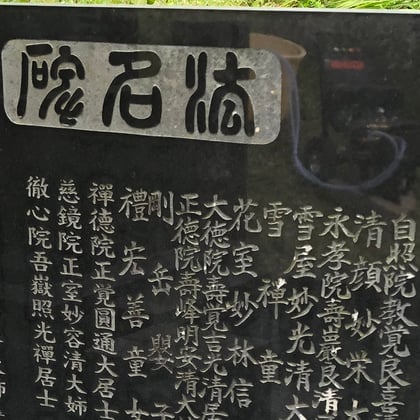 法名碑
自照院教覚良喜
清顔妙栄大
永孝院壽嚴良清
雪屋妙光清大
雪禅童
花室妙林信
大徳院壽覚吉光清居
正徳院壽峰明安清大
剛岳嬰子
禮宏善童女
禪徳院正覚圓通大居士
慈鏡院正室妙容清大姉
徹心院吾嶽照光禪居士